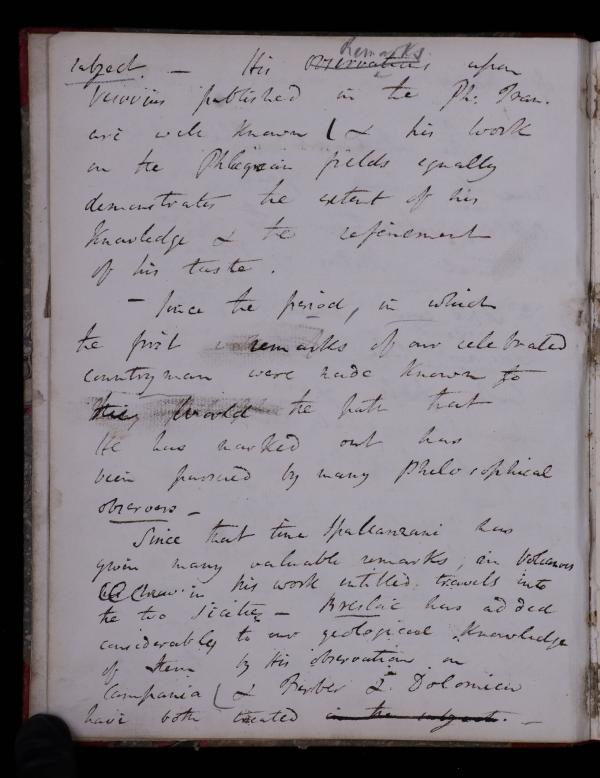 Remarks
subject. — His observations upon
Vesuvius published in the Ph. Tran.
are well known ( & his work
on the Phlegrean fields equally
demonstrates the extent of his
knowledge & the refinement
of his taste.
— Since the period, in which
the first remarks of our celebrated
countryman were made known to
the world the path that
He has marked out has
been pursued by many Philosophical
observers —
Since that time Spallanzani has
given many valuable remarks, on Volcanoes
in his work entitled travels into
the two Sicilies — Breslac has added
considerably to our geological knowledge
of them by His observation on
Campania ( & Ferber & Dolomieu
have both treated in the subject. —